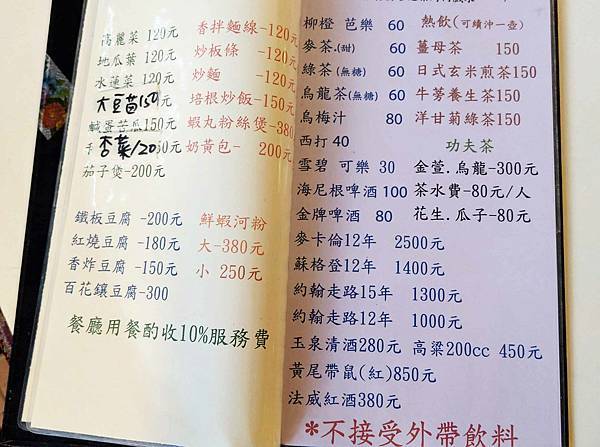 高麗菜 120元
地瓜葉 120元
水蓮菜 120元
大豆苗150元
鹹蛋苦瓜150元
杏菜120
茄子煲-200元
香拌麵線-120元
炒板條 -120元
炒麵 -120元
培根炒飯-150元
蝦丸粉絲煲-380
奶黃包- 200元
鐵板豆腐 -200元
紅燒豆腐 -180元
香炸豆腐 -150元
百花鑲豆腐-300
鮮蝦河粉
大-380元
小 250元
餐廳用餐酌收10%服務費
柳橙 芭樂 60
麥茶.(甜) 60
綠茶(無糖) 60
烏龍茶(無糖) 60
烏梅汁 80
西打 40
雪碧 可樂 30
海尼根啤酒 100
金牌啤酒 80
熱飲(可續沖一壺)
薑母茶 150
日式玄米煎茶150
牛蒡養生茶150
洋甘菊綠茶150
功夫茶
金萱.烏龍-300元
茶水費-80元/人
花生.瓜子-80元
麥卡倫12年 2500元
蘇格登12年 1400元
約翰走路15年 1300元
約翰走路12年 1000元
玉泉清酒280元 高粱200cc 450元
黃尾帶鼠(紅)850元
法威紅酒380元
*不接受外帶飲料